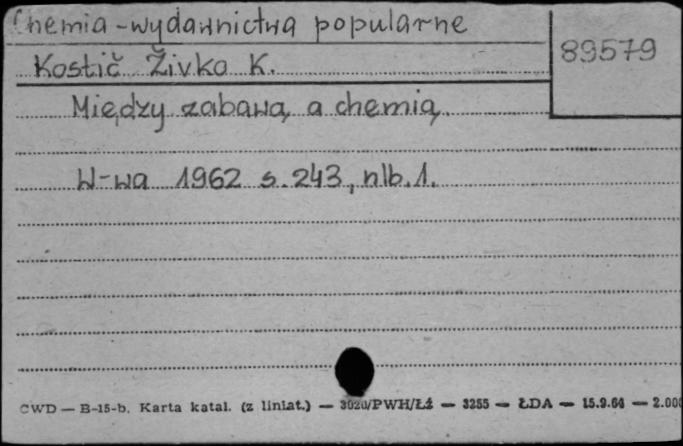 Chemia-wydawnictwa popularne
89579
Kostič Živko K.
Między zabawą a chemią
W-wa 1962 s. 243, nlb. 1.
CWD — B-15-b. Karta katal. (z liniat.) — /PWH/Łź — 3255 — ŁDA — 15.9.64 — 2.000